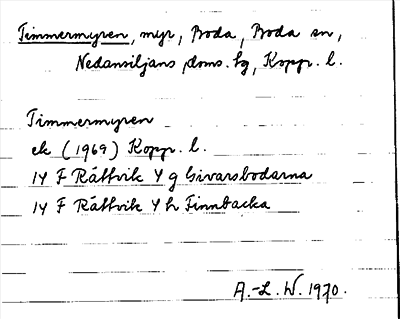 Timmermyren, myr, Boda, Boda sn,
Nedansiljans doms. hg, Kopp. l.
Timmermyren
ek (1969) Kopp. l.
14 F Rättvik 4 g Sivarsbodarna
14 F Rättvik 4 h Finnbacka
A.-L. W. 1970.